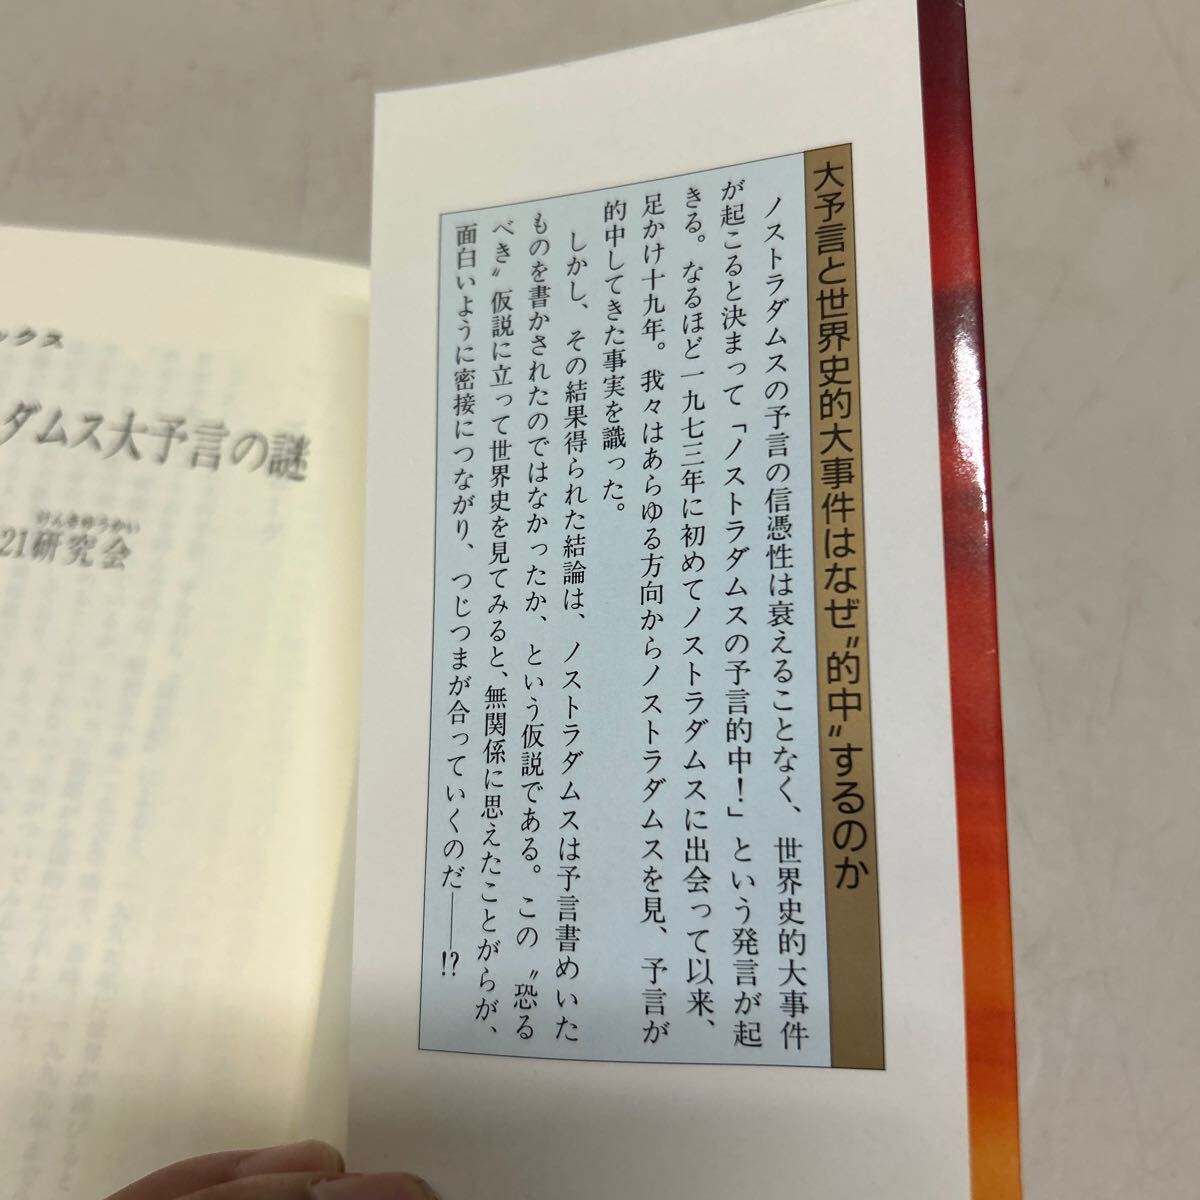 大予言と世界史的大事件はなぜ〝的中〟するのか
ノストラダムスの予言の信憑性は衰えることなく、世界史的大事件
が起こると決まって「ノストラダムスの予言的中！」という発言が起
きる。なるほど一九七三年に初めてノストラダムスに出会って以来、
足かけ十九年。我々はあらゆる方向からノストラダムスを見、予言が
的中してきた事実を識った。
しかし、その結果得られた結論は、ノストラダムスは予言書めいた
ものを書かされたのではなかったか、という仮説である。この〝恐る
べき〟仮説に立って世界史を見てみると、無関係に思えたことがらが、
面白いように密接につながり、つじつまが合っていくのだ――!?
ックス
ダムス大予言の謎
けんきゅうかい
21研究会